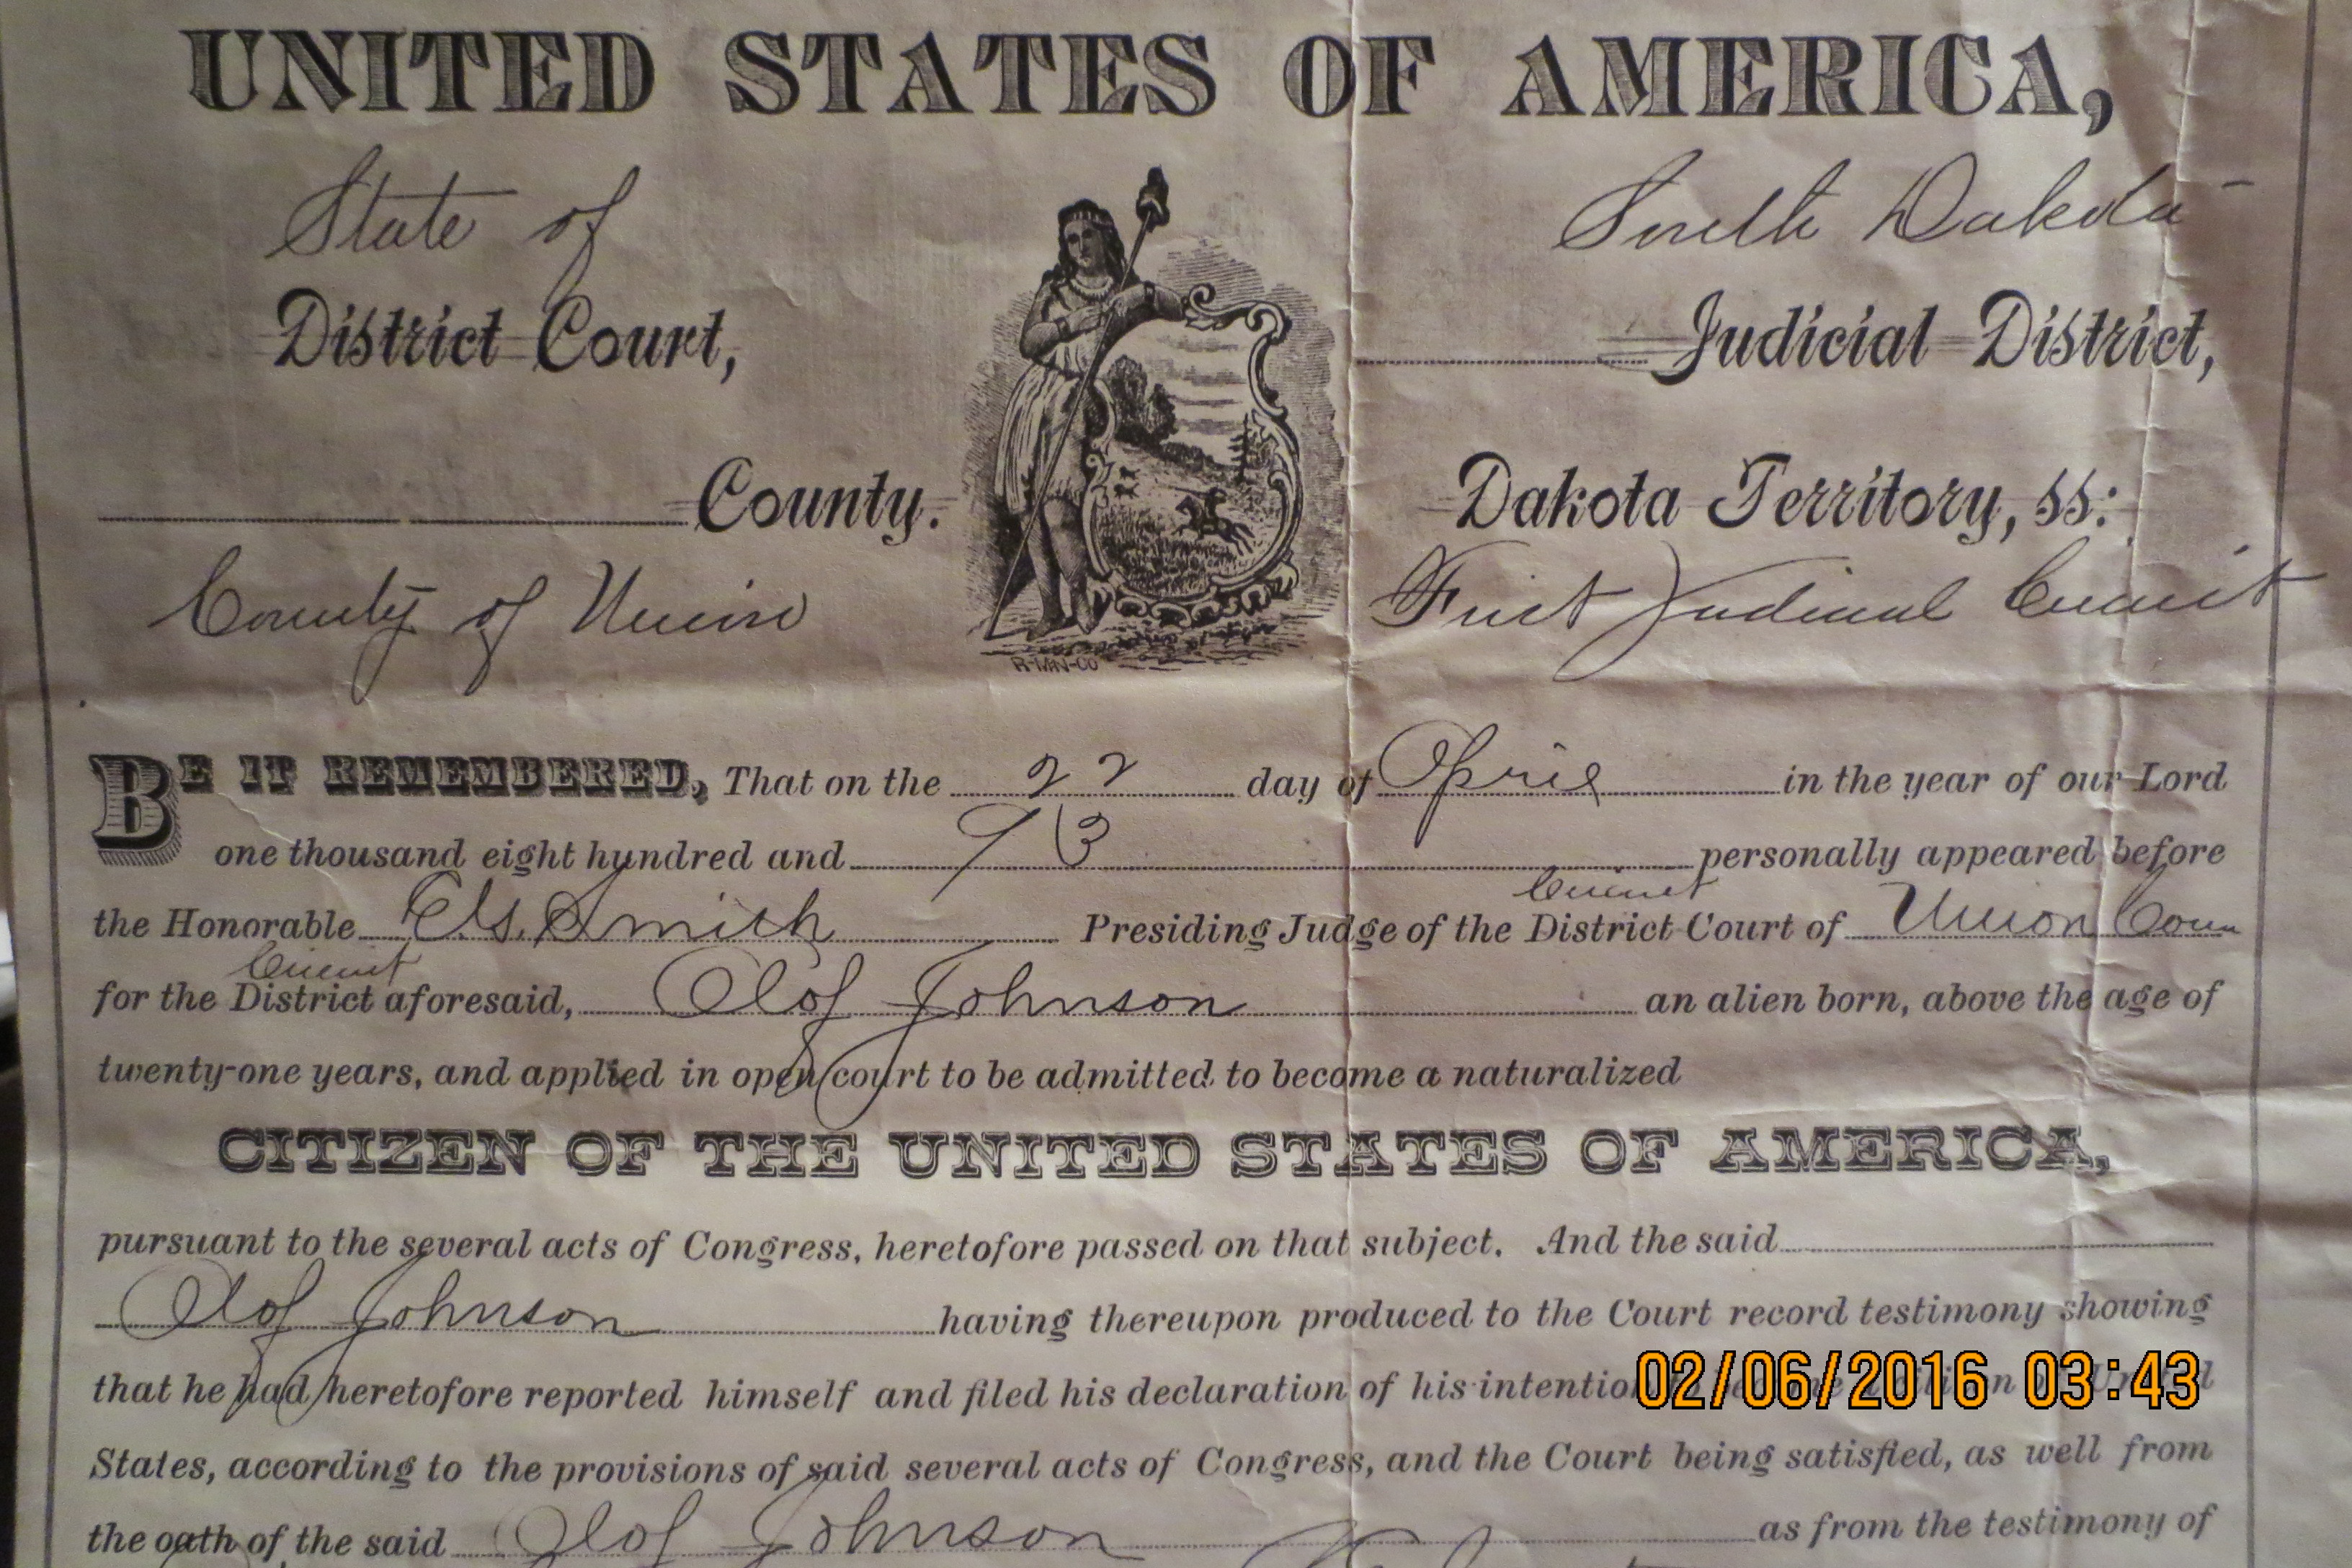 UNITED STATES OF AMERICA,
State of South Dakota
District Court, Judicial District,
County. Dakota Territory, ss:
County of Union First Judicial Circuit
R-MN-CO
BE IT REMEMBERED, That on the 22 day of April in the year of our Lord
one thousand eight hundred and 93 personally appeared before
Circuit
the Honorable E.G. Smith Presiding Judge of the District Court of Union Coun
Circuit
for the District aforesaid, Olof Johnson an alien born, above the age of
twenty-one years, and applied in open court to be admitted to become a naturalized
CITIZEN OF THE UNITED STATES OF AMERICA,
pursuant to the several acts of Congress, heretofore passed on that subject. And the said
Olof Johnson having thereupon produced to the Court record testimony showing
that he had heretofore reported himself and filed his declaration of his intention
02/06/2016 03:43
States, according to the provisions of said several acts of Congress, and the Court being satisfied, as well from
the oath of the said Olof Johnson as from the testimony of